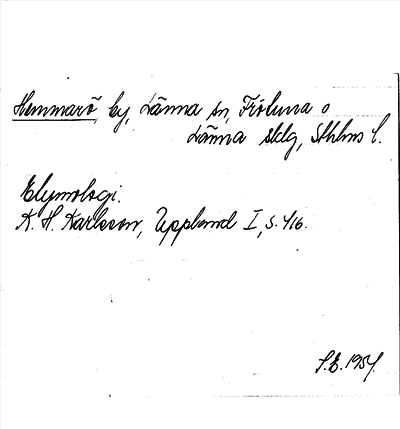 Hemmarö, by, Länna sn, Frötuna o
Länna sklg, Sthlms l.
Etymologi.
K. H. Karlsson, Uppland I, s. 416.
S.E. 1954.